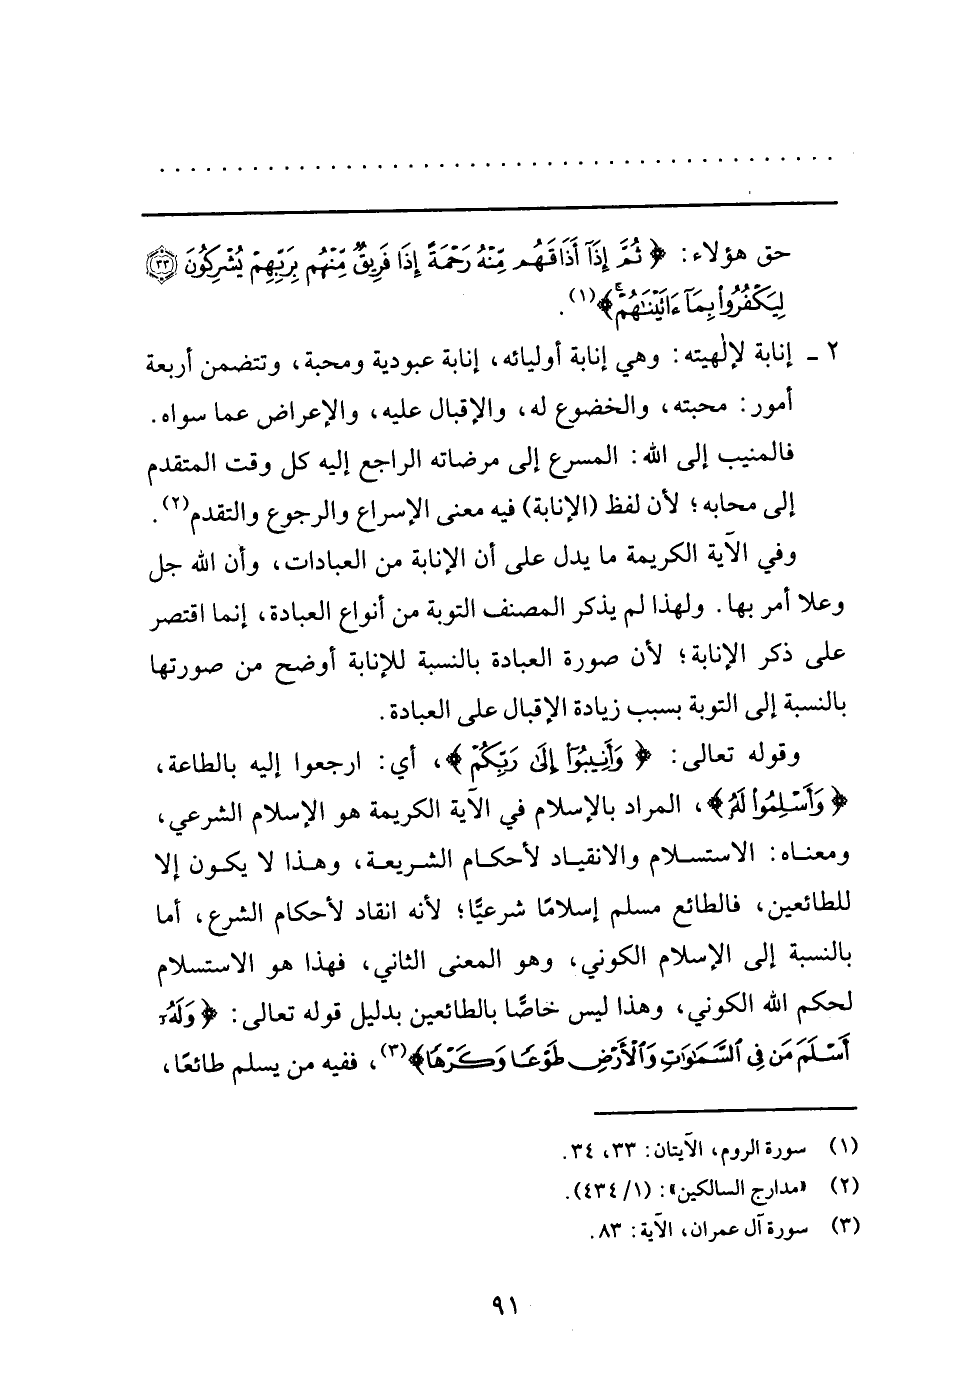 حق هؤلاء: ﴿ ثُمَّ إِذَآ أَذَاقَهُم مِّنْهُ رَحْمَةً إِذَا فَرِيقٌ مِّنْهُم بِرَبِّهِمْ يُشْرِكُونَ ٣٣
لِيَكْفُرُواْ بِمَآ ءَاتَيْنَٰهُمْۚ﴾(١).
٢ ـ إنابة لإلٰهيته: وهي إنابة أوليائه، إنابة عبودية ومحبة، وتتضمن أربعة
أمور: محبته، والخضوع له، والإقبال عليه، والإعراض عما سواه.
فالمنيب إلى الله: المسرع إلى مرضاته الراجع إليه كل وقت المتقدم
إلى محابه؛ لأن لفظ (الإنابة) فيه معنى الإسراع والرجوع والتقدم(٢).
وفي الآية الكريمة ما يدل على أن الإنابة من العبادات، وأن الله جل
وعلا أمر بها. ولهذا لم يذكر المصنف التوبة من أنواع العبادة، إنما اقتصر
على ذكر الإنابة؛ لأن صورة العبادة بالنسبة للإنابة أوضح من صورتها
بالنسبة إلى التوبة بسبب زيادة الإقبال على العبادة.
وقوله تعالى: ﴿ وَأَنِيبُوٓاْ إِلَىٰ رَبِّكُمْ ﴾، أي: ارجعوا إليه بالطاعة،
﴿ وَأَسْلِمُواْ لَهُۥ ﴾، المراد بالإسلام في الآية الكريمة هو الإسلام الشرعي،
ومعناه: الاستسلام والانقياد لأحكام الشريعة، وهذا لا يكون إلا
للطائعين، فالطائع مسلم إسلامًا شرعيًّا؛ لأنه انقاد لأحكام الشرع، أما
بالنسبة إلى الإسلام الكوني، وهو المعنى الثاني، فهذا هو الاستسلام
لحكم الله الكوني، وهذا ليس خاصًّا بالطائعين بدليل قوله تعالى: ﴿ وَلَهُۥٓ
أَسْلَمَ مَن فِي ٱلسَّمَٰوَٰتِ وَٱلْأَرْضِ طَوْعًا وَكَرْهًا﴾(٣)، ففيه من يسلم طائعًا،
(١) سورة الروم، الآيتان: ٣٣، ٣٤.
(٢) «مدارج السالكين»: (١/ ٤٣٤).
(٣) سورة آل عمران، الآية: ٨٣.
٩١